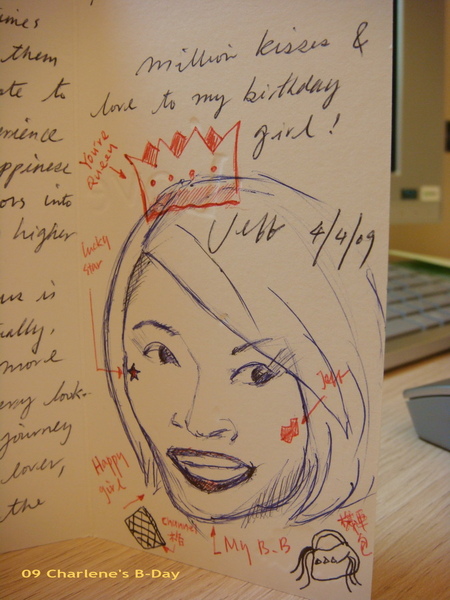 times
them
te to
erience
appiness
ors into
higher
us is
ually,
more
ery look-
journey
lover,
the
million kisses &
love to my birthday
girl!
You're
Queen
Jeff 4/4/09
lucky
star
Jeff
Happy
girl
Channel
My B.B
09 Charlene's B-Day